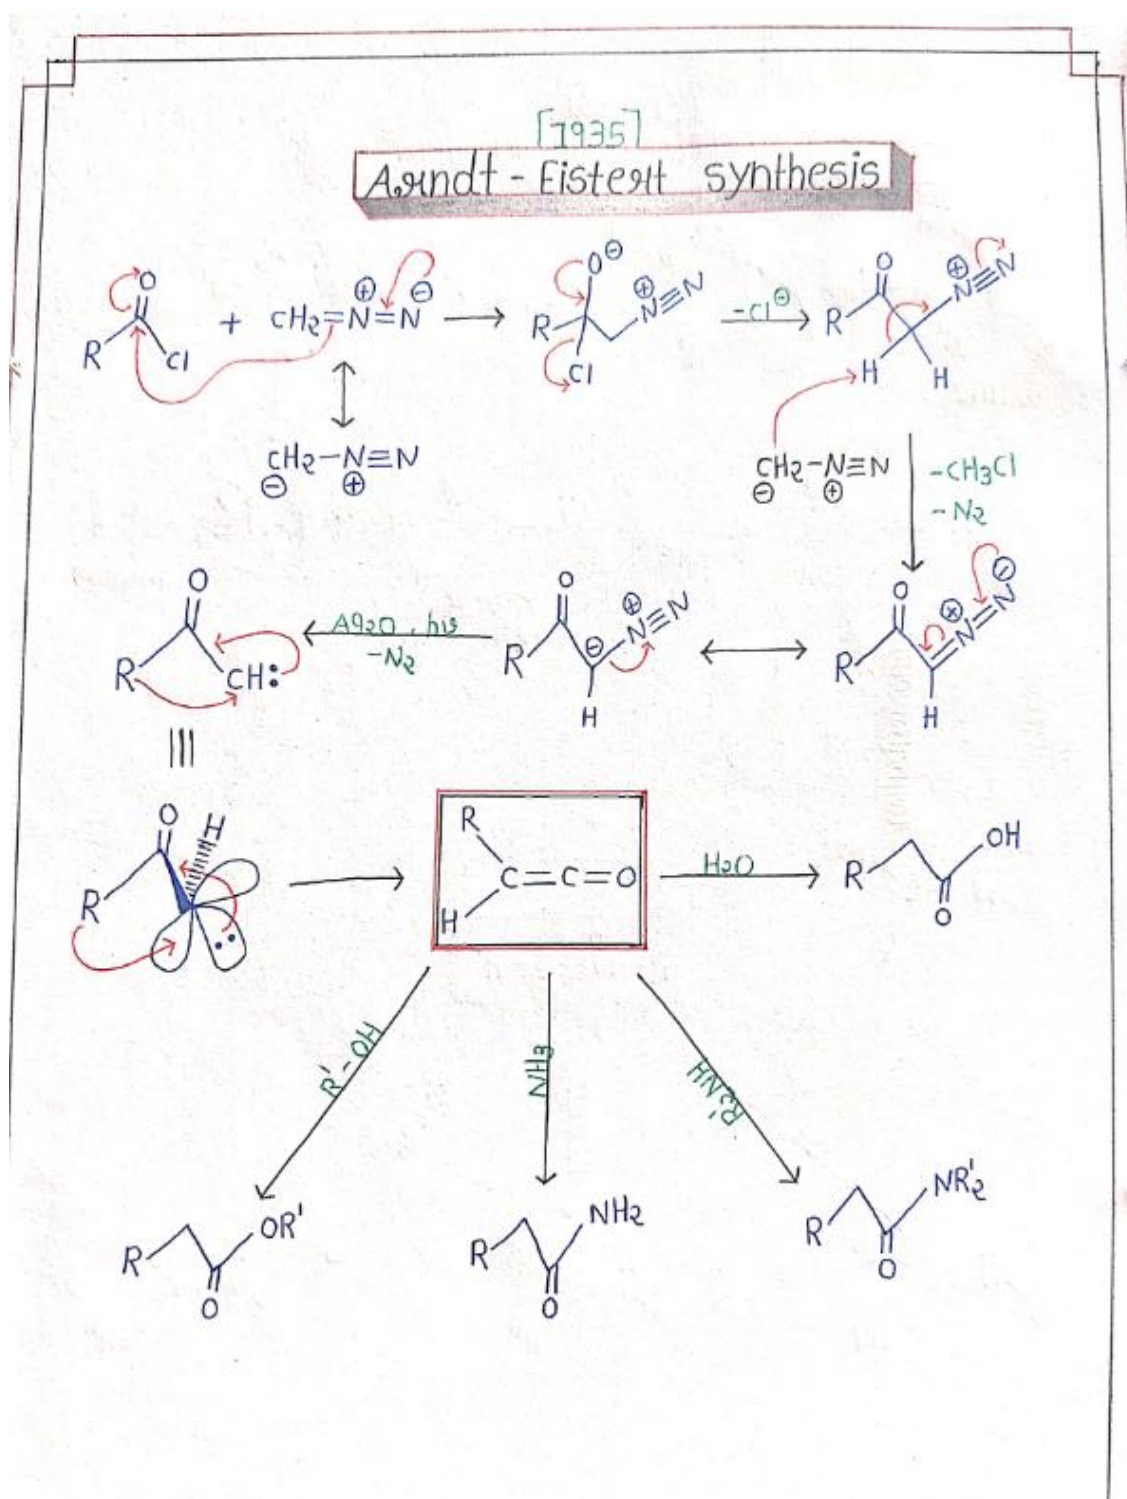 [1935]
Arndt - Eistert synthesis
R O Cl + CH2=N⊕=N⊖ → R O⊖ Cl N⊕≡N -Cl⊖ → R O N⊕≡N H H
⊖CH2-N⊕≡N
⊖CH2-N⊕≡N
-CH3Cl
-N2
R O CH: Ag2O, hν
-N2
R O ⊖ N⊕≡N H ↔ R O N⊕=N⊖ H
R O H
R H C=C=O H2O → R OH O
R'-OH
NH3
R'2NH
R OR' O
R NH2 O
R NR'2 O